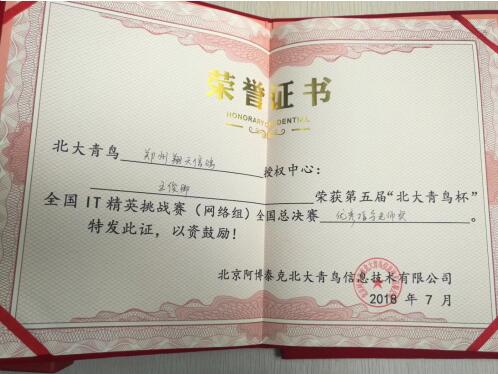 荣誉证书
HONORARY CREDENTIAL
北大青鸟 郑州翔天信鸽 授权中心：
王俊卿 荣获第五届“北大青鸟杯”
全国 IT 精英挑战赛（网络组）全国总决赛 优秀指导老师奖
特发此证，以资鼓励！
北京阿博泰克北大青鸟信息技术有限公司
2018 年 7 月